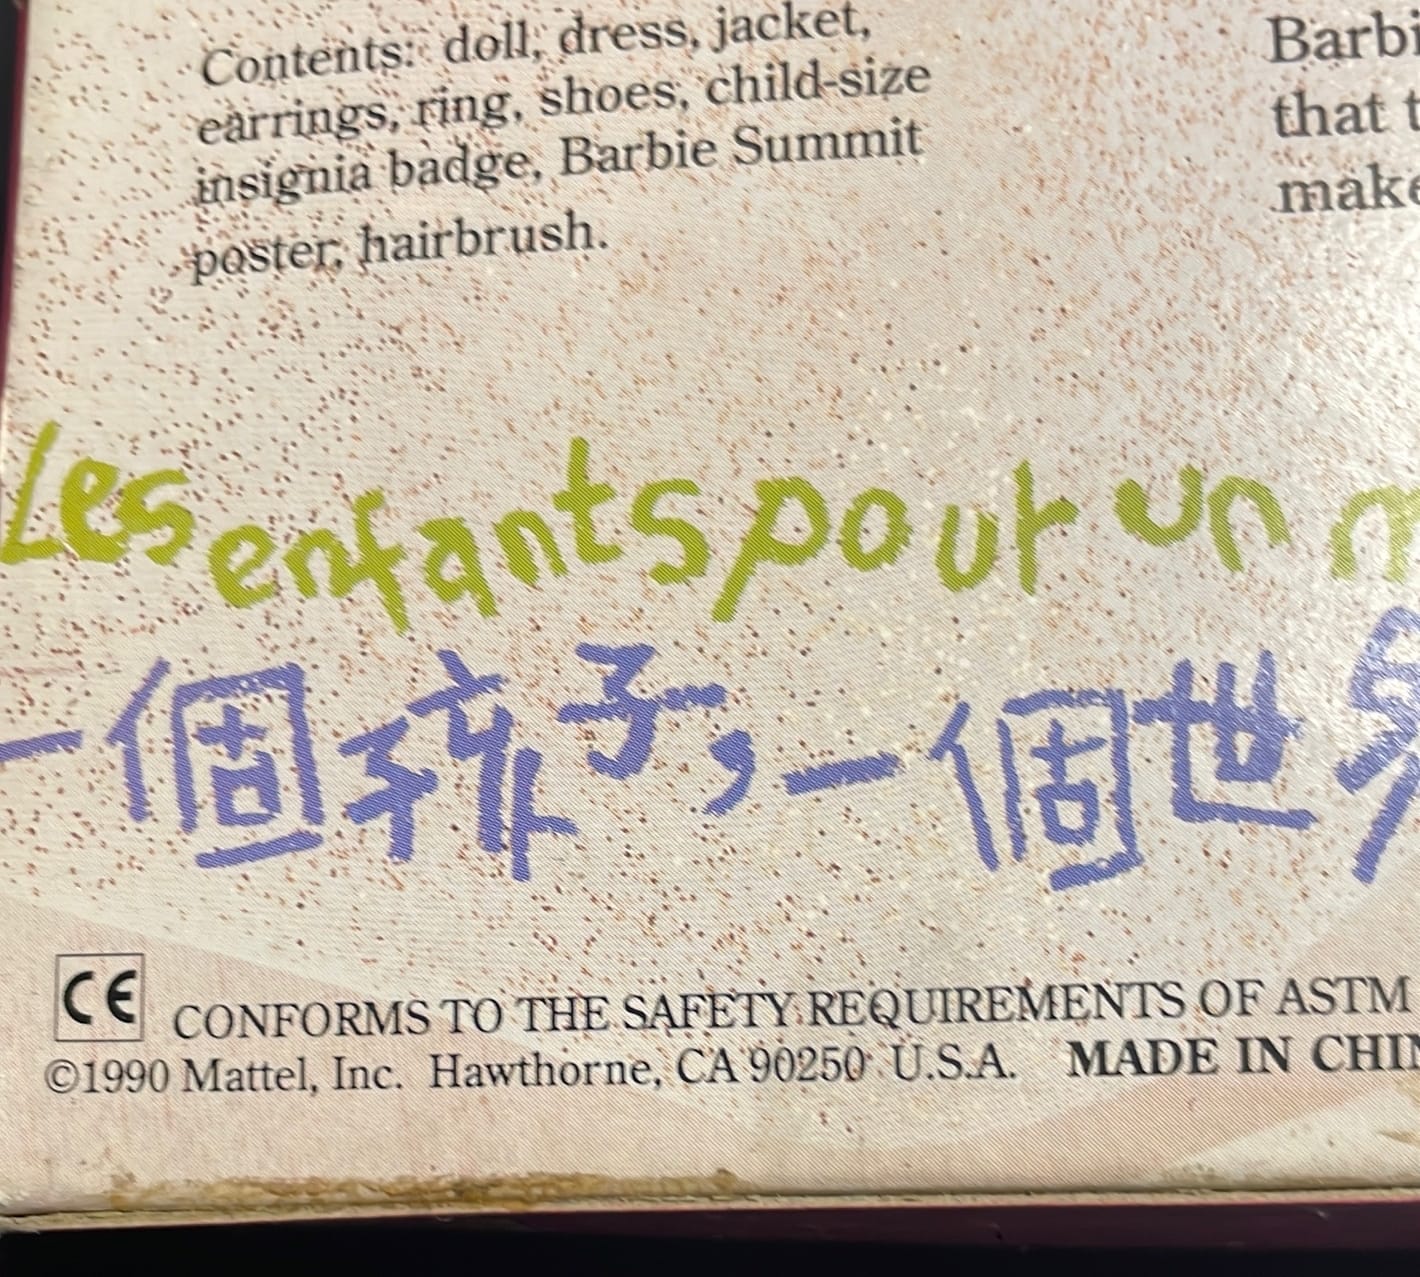 Contents: doll, dress, jacket,
earrings, ring, shoes, child-size
insignia badge, Barbie Summit
poster, hairbrush.
Barbi
that t
make
Les enfants pour un m
一個孩子，一個世界
CE CONFORMS TO THE SAFETY REQUIREMENTS OF ASTM
©1990 Mattel, Inc. Hawthorne, CA 90250 U.S.A. MADE IN CHIN